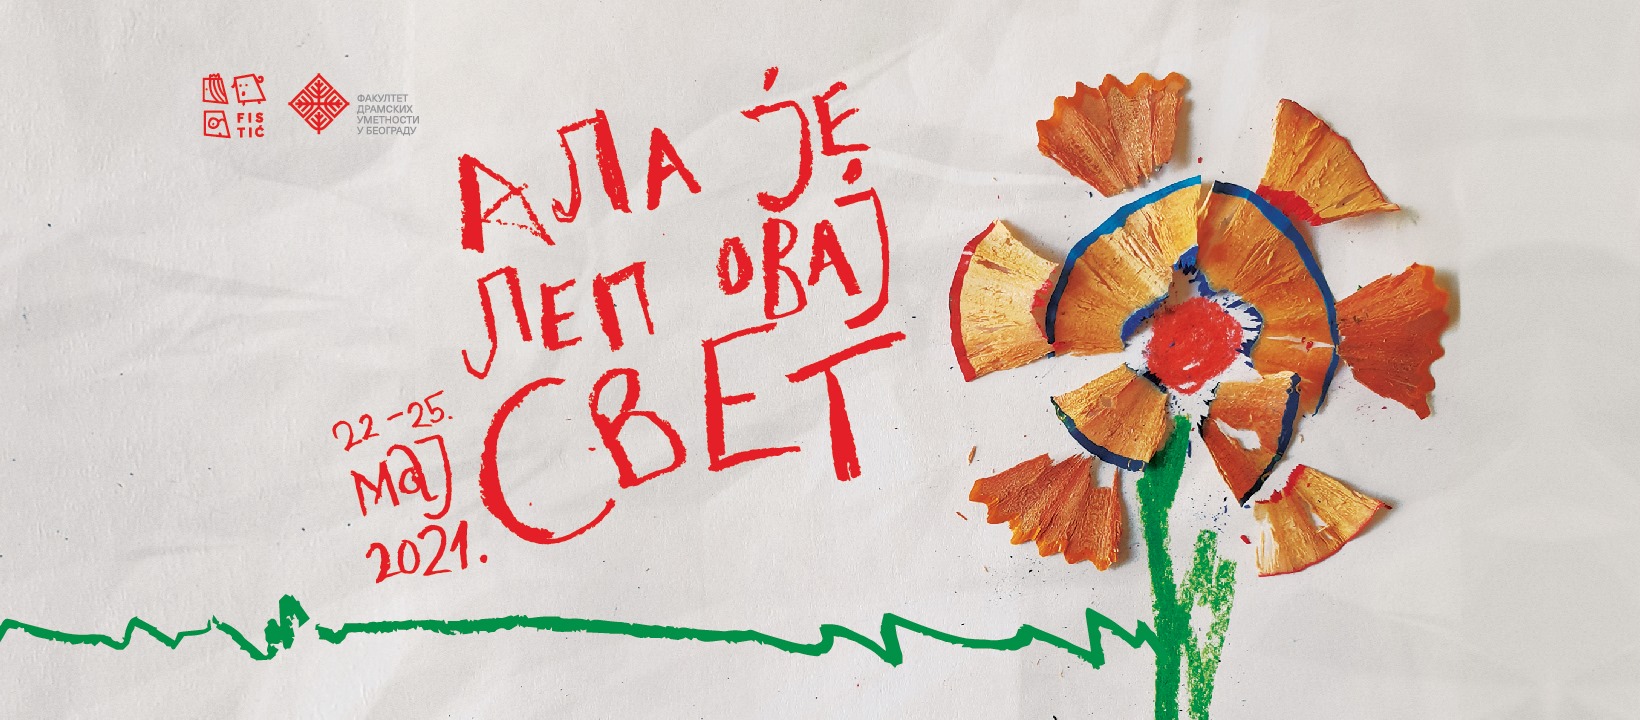 FIS
TIĆ
ФАКУЛТЕТ
ДРАМСКИХ
УМЕТНОСТИ
У БЕОГРАДУ
АЛА ЈЕ
ЛЕП ОВАЈ
СВЕТ
22-25.
МАЈ
2021.